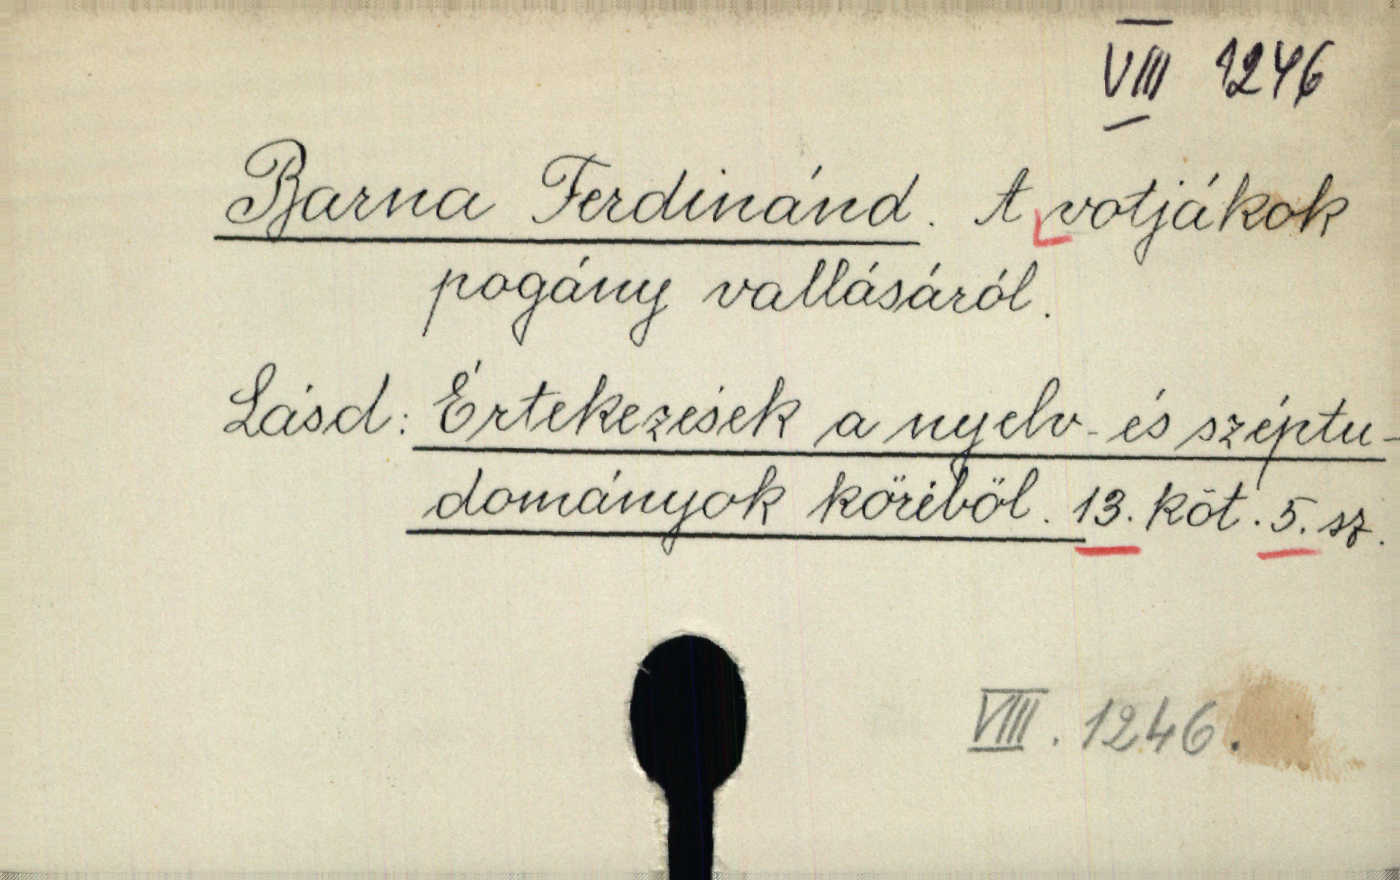 VIII 1246
Barna Ferdinánd. A votjákok
pogány vallásáról.
Lásd: Értekezések a nyelv- és széptu-
dományok köréből. 13. köt. 5. sz.
VIII. 1246.